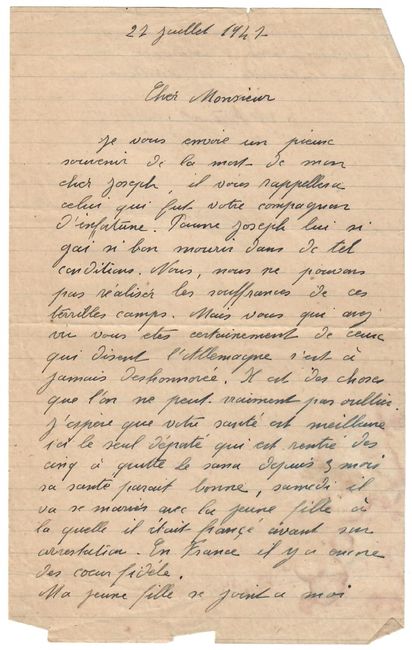 27 juillet 1947
Cher Monsieur
Je vous envoie un pieux
souvenir de la mort de mon
cher Joseph, il vous rappellera
celui qui fut votre compagnon
d'infortune. Pauvre Joseph lui si
gai si bon mourir dans de tel
conditions. Nous, nous ne pouvons
pas réaliser les souffrances de ces
terribles camps. Mais vous qui avez
vu vous etes certainement de ceux
qui disent l'Allemagne s'est à
jamais deshonnorée. Il est des choses
que l'on ne peut vraiment pas oublier.
J'espère que votre santé est meilleure
ici le seul déporté qui est rentré des
cinq à quitté le sana depuis 3 mois
sa santé parait bonne, samedi il
va se marier avec la jeune fille à
la quelle il était fiancé avant son
arrestation. En France il y a encore
des cœur fidèle.
Ma jeune fille se joint a moi